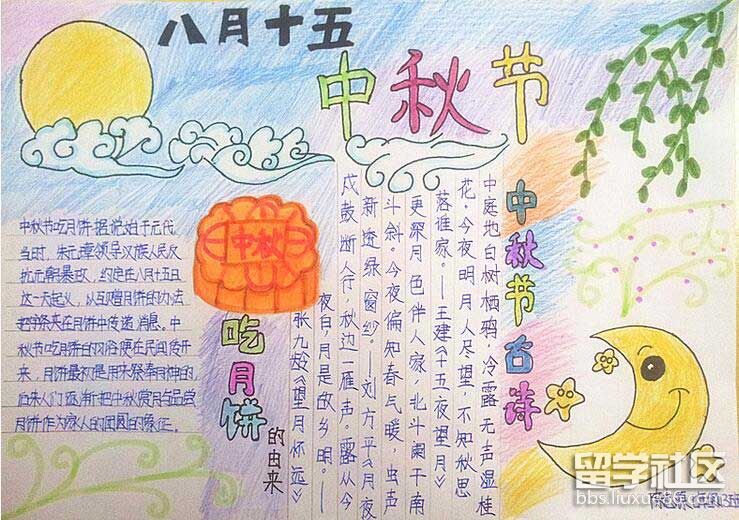 八月十五
中秋节
中秋节吃月饼据说始于元代
当时,朱元璋领导汉族人民反
抗元朝暴政,约定在八月十五日
这一天起义,以互赠月饼的办法
把字条夹在月饼中传递消息。中
秋节吃月饼的习俗便在民间传开
来,月饼最初是用来祭奉月神的
后来人们逐渐把中秋赏月与品尝
月饼作为家人的团圆的象征。
中秋
吃月饼
的由来
中秋节古诗
中庭地白树栖鸦,冷露无声湿桂
花。今夜明月人尽望,不知秋思
落谁家。——王建《十五夜望月》
更深月色伴人家,北斗阑干南
斗斜。今夜偏知春气暖,虫声
新透绿窗纱。——刘方平《月夜
戍鼓断人行,秋边一雁声。露从今
夜白,月是故乡明。——
张九龄《望月怀远》
留学社区
bbs.liuxue86.com